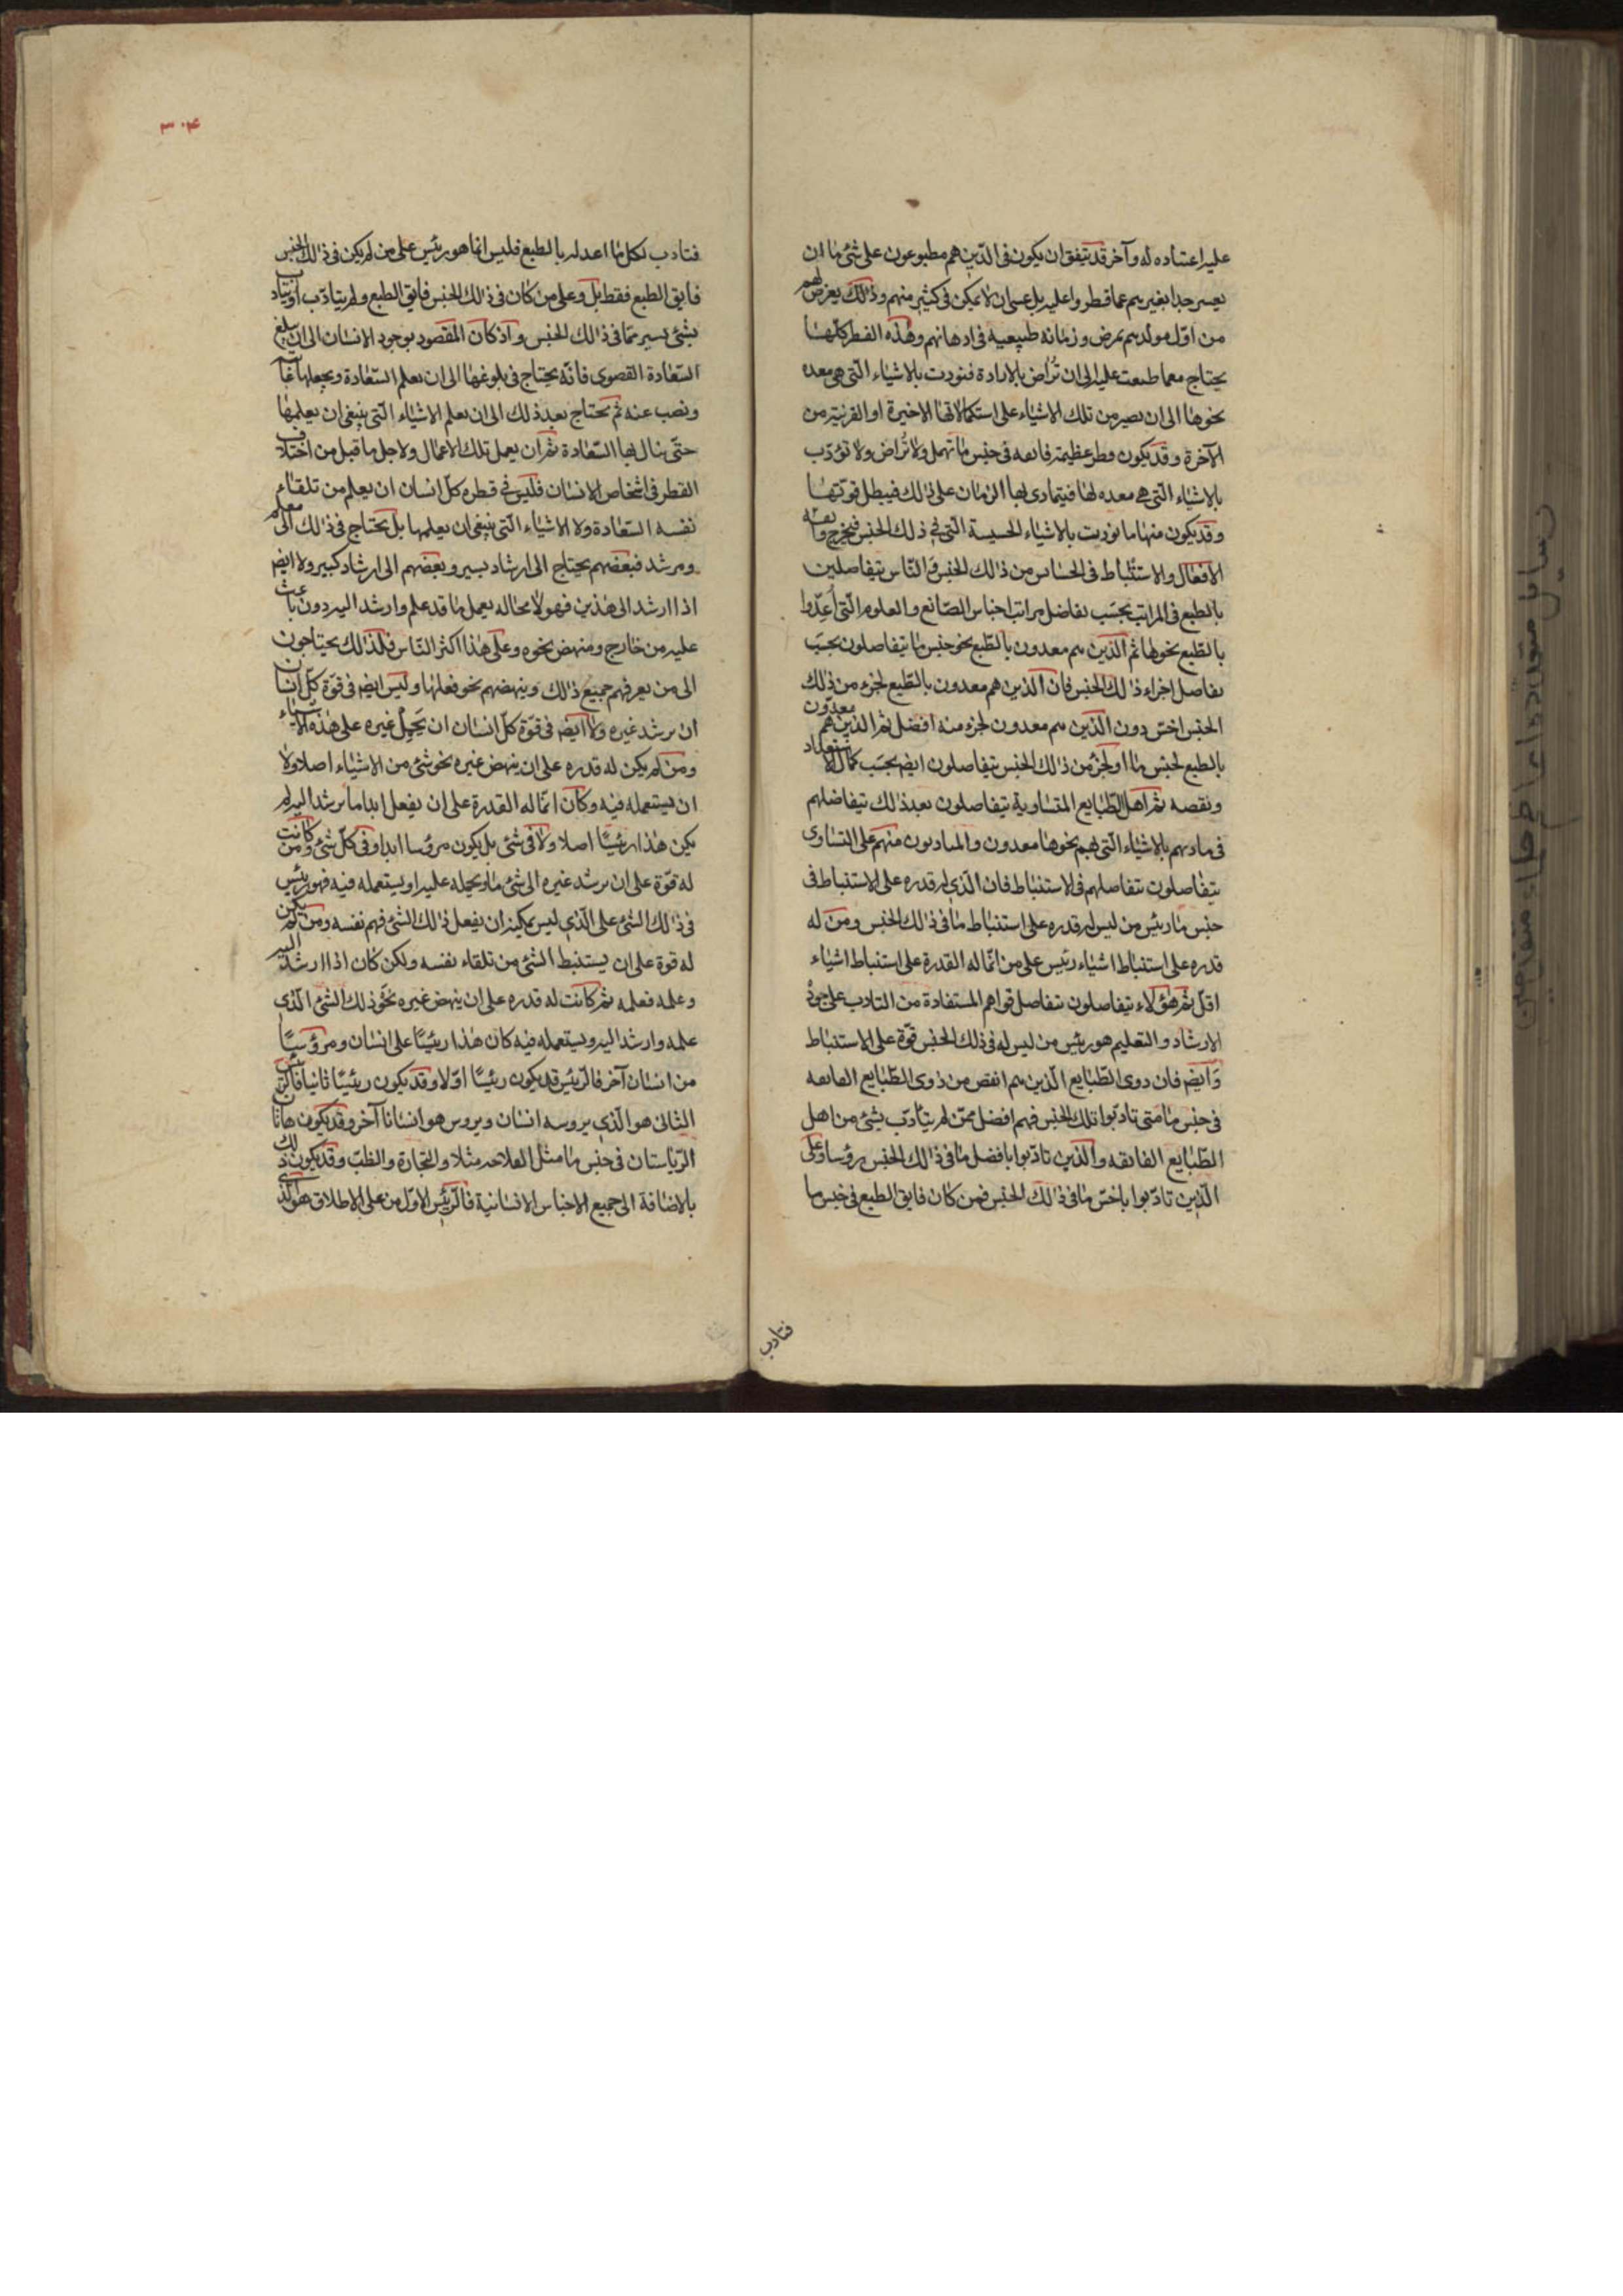 عليه اعتياده له وآخر قد يتفق ان يكون فى الذين هم مطبوعون على شئ ما ان
يعسر جدا تغييرهم عما فطروا عليه بل عسى ان لا يمكن فى كثير منهم وذلك يعرض لهم
من اوّل مولدهم بمرض وزمانة طبيعية فى اذهانهم وهذه الفطر كلّها
يحتاج مع ما طبعت عليه الى ان تُراض بالارادة فتودب بالاشياء الّتى هى معده
نحوها الى ان يصير من تلك الاشياء على استكمالاتها الاخيرة او القريبة من
الآخرة وقد يكون فطر عظيمة فايقه فى جنس ما تهمل ولا تُراض ولا تؤدّب
بالاشياء الّتى هى معده لها فيتمادى بها الزمان على ذلك فيبطل قوتها
وقد يكون منها ما تودب بالاشياء الخسيسة الّتى فى ذلك الجنس فيخرج فايقة
الافعال والاستنباط فى الخسائس من ذلك الجنس والنّاس يتفاضلون
بالطبع فى المراتب بحسب تفاضل مراتب اجناس الصّنائع والعلوم الّتى أُعِدّوا
بالطّبع نحوها ثم الّذين هم معدون بالطّبع نحو جنس ما يتفاضلون بحسب
تفاضل اجزاء ذلك الجنس فان الّذين هم معدون بالطّبع لجزء من ذلك
الجنس اخسّ دون الّذين هم معدون لجزء منه افضل ثم الّذين هم معدّون
بالطبع لجنس ما او لجزء من ذلك الجنس يتفاضلون ايضا بحسب كمال الاستعداد
ونقصه ثم اهل الطّبايع المتساوية يتفاضلون بعد ذلك بتفاضلهم
فى تادبهم بالاشياء الّتى هم نحوها معدون والمتادبون منهم على التساوى
يتفاضلون بتفاضلهم فى الاستنباط فان الّذى له قدره على الاستنباط فى
جنس ما رئيس من ليس له قدره على استنباط ما فى ذلك الجنس ومن له
قدره على استنباط اشياء رئيس على من انّما له القدرة على استنباط اشياء
اقلّ ثم هؤلاء يتفاضلون بتفاضل قواهم المستفادة من التادب على جودة
الارشاد والتعليم هو رئيس من ليس له فى ذلك الجنس قوّة على الاستنباط
وايضا فان ذوى الطّبايع الّذين هم انقص من ذوى الطّبايع الفايقه
فى جنس ما متى تادّبوا بتلك الجنس فهم افضل ممّن لم يتأدّب بشئ من اهل
الطّبايع الفائقه والّذين تادّبوا بافضل ما فى ذلك الجنس رؤساء على
الّذين تادّبوا باخسّ ما فى ذلك الجنس فمن كان فايق الطبع فى جنس ما
فتادب
رسايل متعدده اى حكماء متقدمين
٣٠۴
فتادب لكل ما اعد له بالطبع فليس انما هو رئيس على من لم يكن فى ذلك الجنس
فايق الطبع فقط بل وعلى من كان فى ذلك الجنس فايق الطبع ولم يتادّب او تادب
بشئ يسير ممّا فى ذلك الجنس واذ كان المقصود بوجود الانسان الى ان يبلغ
السّعادة القصوى فانّه يحتاج فى بلوغها الى ان يعلم السّعادة ويجعلها غايته
ونصب عينه ثم يحتاج بعد ذلك الى ان يعلم الاشياء الّتى ينبغى ان يعلمها
حتّى ينال بها السّعادة ثم ان يعمل تلك الاعمال ولاجل ما قيل من اختلاف
الفطر فى اشخاص الانسان فليس فى فطره كلّ انسان ان يعلم من تلقاء
نفسه السّعادة ولا الاشياء الّتى ينبغى ان يعلمها بل يحتاج فى ذلك الى معلم
ومرشد فبعضهم يحتاج الى ارشاد يسير وبعضهم الى ارشاد كبير ولا ايضا
اذا ارشد الى هذين فهو لا محاله يعمل ما قد علم وارشد اليه دون باعث
عليه من خارج ومنهض نحوه وعلى هذا اكثر النّاس فلذلك يحتاجون
الى من يعرفهم جميع ذلك وينهضهم نحو فعلها وليس ايضا فى قوّة كلّ انسان
ان يرشد غيره ولا ايضا فى قوّة كلّ انسان ان يحمل غيره على هذه الاشياء
ومن لم يكن له قدره على ان ينهض غيره نحو شئ من الاشياء اصلا ولا
ان يستعمله فيه وكان انّما له القدرة على ان يفعل ابدا ما يرشد اليه لم
يكن هذا رئيسًا اصلا ولا فى شئ بل يكون مرؤسا ابدا وفى كلّ شئ ومن كانت
له قوّة على ان يرشد غيره الى شئ ما ويحمله عليه او يستعمله فيه فهو رئيس
فى ذلك الشئ على الّذى ليس يمكنه ان يفعل ذلك الشئ فهم نفسه ومن لم يكن
له قوة على ان يستنبط الشئ من تلقاء نفسه ولكن كان اذا ارشد اليه
وعلمه فعلمه ثم كانت له قدره على ان ينهض غيره نحو ذلك الشئ الّذى
علمه وارشد اليه ويستعمله فيه كان هذا رئيسًا على انسان ومرؤسًا
من انسان آخر فالرّئيس قد يكون رئيسًا اوّلا وقد يكون رئيسًا ثانيا فالرّئيس
الثانى هو الّذى يروسه انسان ويروس هو انسانا آخر وقد يكون هاتان
الرّياستان فى جنس ما مثل الفلاحه مثلا والتجارة والطّبّ وقد يكون ذلك
بالاضافة الى جميع الاجناس الانسانية فالرّئيس الاوّل من على الاطلاق هو الّذى